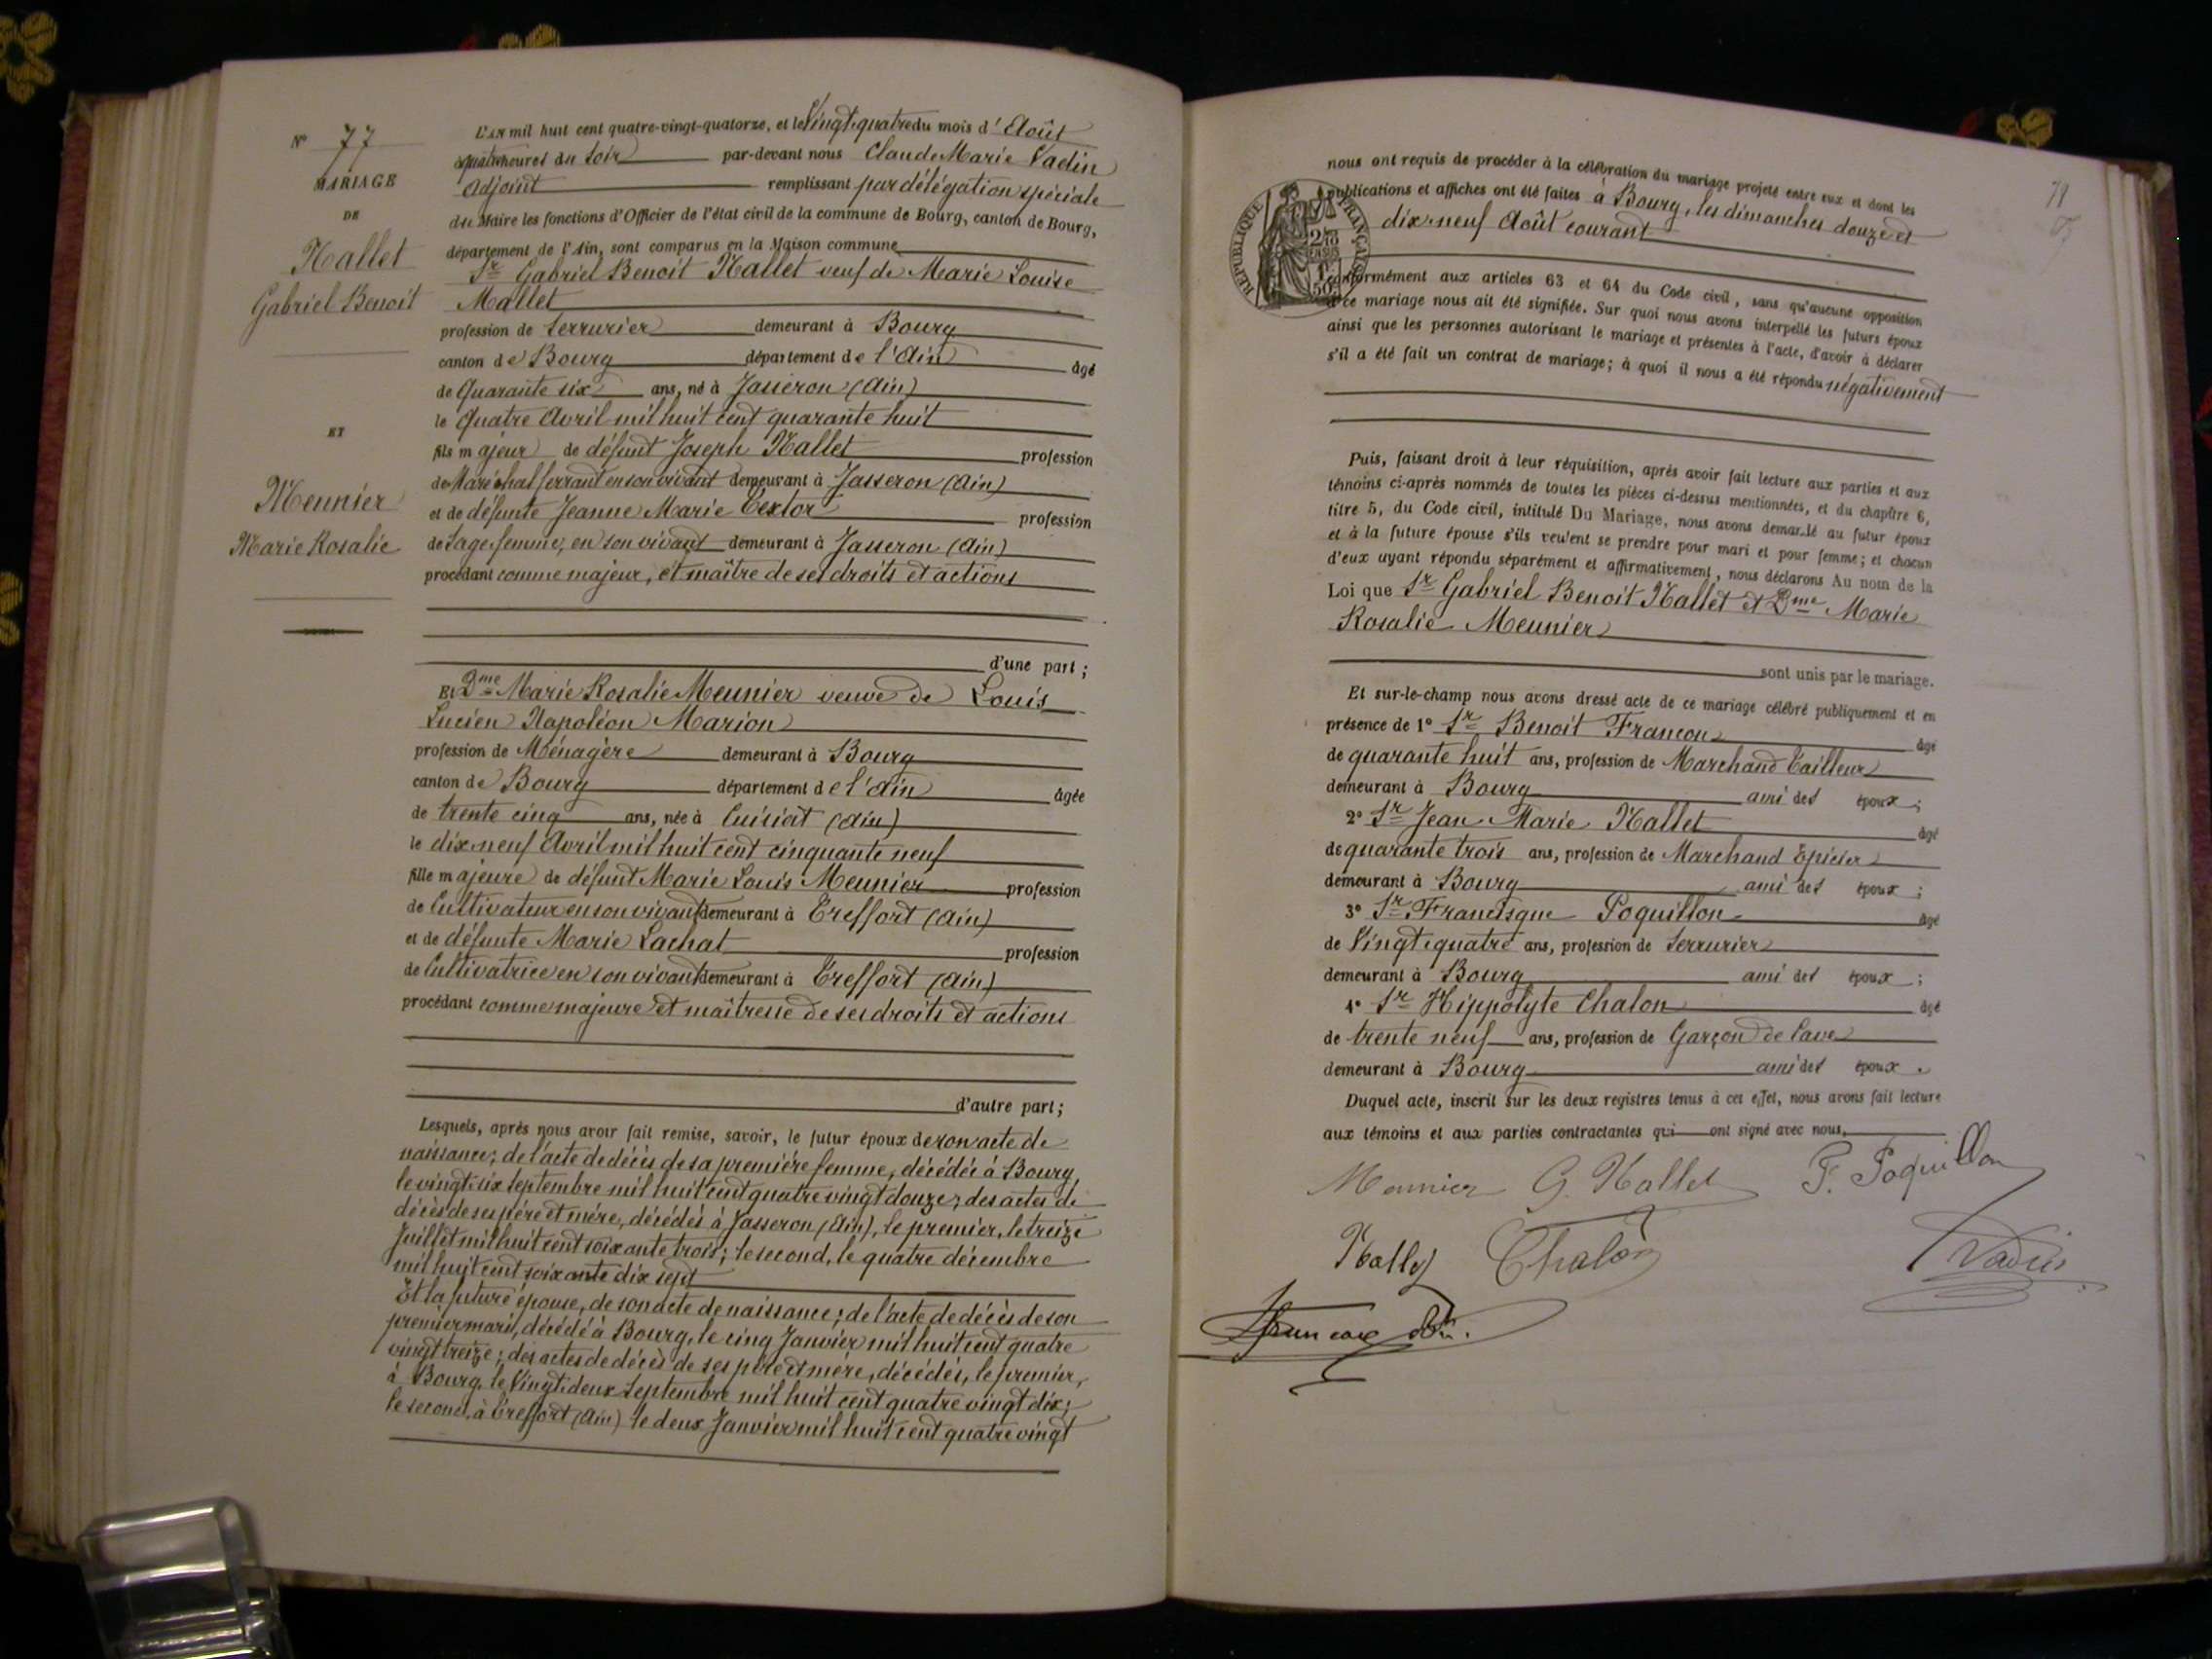 N° 77
MARIAGE
DE
Hallet
Gabriel Benoit
ET
Meunier
Marie Rosalie
L'AN mil huit cent quatre-vingt-quatorze, et le Vingt quatre du mois d'Août
à quatre heures du soir par-devant nous Claude Marie Vadin
adjoint remplissant par délégation spéciale
du Maire les fonctions d'Officier de l'état civil de la commune de Bourg, canton de Bourg,
département de l'Ain, sont comparus en la Maison commune
Sr Gabriel Benoit Hallet veuf de Marie Louise
Mallet
profession de serrurier demeurant à Bourg
canton de Bourg département de l'Ain âgé
de Quarante six ans, né à Jasseron (Ain)
le quatre Avril mil huit cent quarante huit
fils majeur de défunt Joseph Hallet profession
de Maréchal ferrant en son vivant demeurant à Jasseron (Ain)
et de défunte Jeanne Marie Textor profession
de Sage femme, en son vivant demeurant à Jasseron (Ain)
procédant comme majeur, et maître de ses droits et actions
d'une part;
Et Dme Marie Rosalie Meunier veuve de Louis
Lucien Napoléon Marion
profession de Ménagère demeurant à Bourg
canton de Bourg département de l'Ain âgée
de trente cinq ans, née à Cuisiat (Ain)
le dix neuf Avril mil huit cent cinquante neuf
fille majeure de défunt Marie Louis Meunier profession
de Cultivateur en son vivant demeurant à Treffort (Ain)
et de défunte Marie Lachat profession
de Cultivatrice en son vivant demeurant à Treffort (Ain)
procédant comme majeure et maîtresse de ses droits et actions
d'autre part;
Lesquels, après nous avoir fait remise, savoir, le futur époux de son acte de
naissance; de l'acte de décès de sa première femme, décédée à Bourg,
le vingt six septembre mil huit cent quatre vingt douze; des actes de
décès de ses père et mère, décédés à Jasseron (Ain), le premier, le treize
Juillet mil huit cent soixante trois; le second, le quatre décembre
mil huit cent soixante dix sept
Et la future épouse, de son acte de naissance; de l'acte de décès de son
premier mari, décédé à Bourg, le cinq Janvier mil huit cent quatre
vingt treize; des actes de décès de ses père et mère, décédés, le premier,
à Bourg, le Vingt deux Septembre mil huit cent quatre vingt dix;
le second, à Treffort (Ain) le deux Janvier mil huit cent quatre vingt
nous ont requis de procéder à la célébration du mariage projeté entre eux et dont les
publications et affiches ont été faites à Bourg, les dimanches douze et
dix neuf Août courant
RÉPUBLIQUE FRANÇAISE
conformément aux articles 63 et 64 du Code civil, sans qu'aucune opposition
à ce mariage nous ait été signifiée. Sur quoi nous avons interpellé les futurs époux
ainsi que les personnes autorisant le mariage et présentes à l'acte, d'avoir à déclarer
s'il a été fait un contrat de mariage; à quoi il nous a été répondu négativement
Puis, faisant droit à leur réquisition, après avoir fait lecture aux parties et aux
témoins ci-après nommés de toutes les pièces ci-dessus mentionnées, et du chapitre 6,
titre 5, du Code civil, intitulé Du Mariage, nous avons demandé au futur époux
et à la future épouse s'ils veulent se prendre pour mari et pour femme; et chacun
d'eux ayant répondu séparément et affirmativement, nous déclarons Au nom de la
Loi que Sr Gabriel Benoit Hallet et Dme Marie
Rosalie Meunier
sont unis par le mariage.
Et sur-le-champ nous avons dressé acte de ce mariage célébré publiquement et en
présence de 1° Sr Benoit Francon âgé
de quarante huit ans, profession de Marchand Tailleur
demeurant à Bourg ami des époux;
2° Sr Jean Marie Hallet âgé
de quarante trois ans, profession de Marchand Epicier
demeurant à Bourg ami des époux;
3° Sr Francisque Poquillon âgé
de Vingt quatre ans, profession de serrurier
demeurant à Bourg ami des époux;
4° Sr Hippolyte Chalon âgé
de trente neuf ans, profession de Garçon de Cave
demeurant à Bourg ami des époux.
Duquel acte, inscrit sur les deux registres tenus à cet effet, nous avons fait lecture
aux témoins et aux parties contractantes qui ont signé avec nous,
Meunier G. Hallet P. Poquillon
Hallet Chalon Vadin